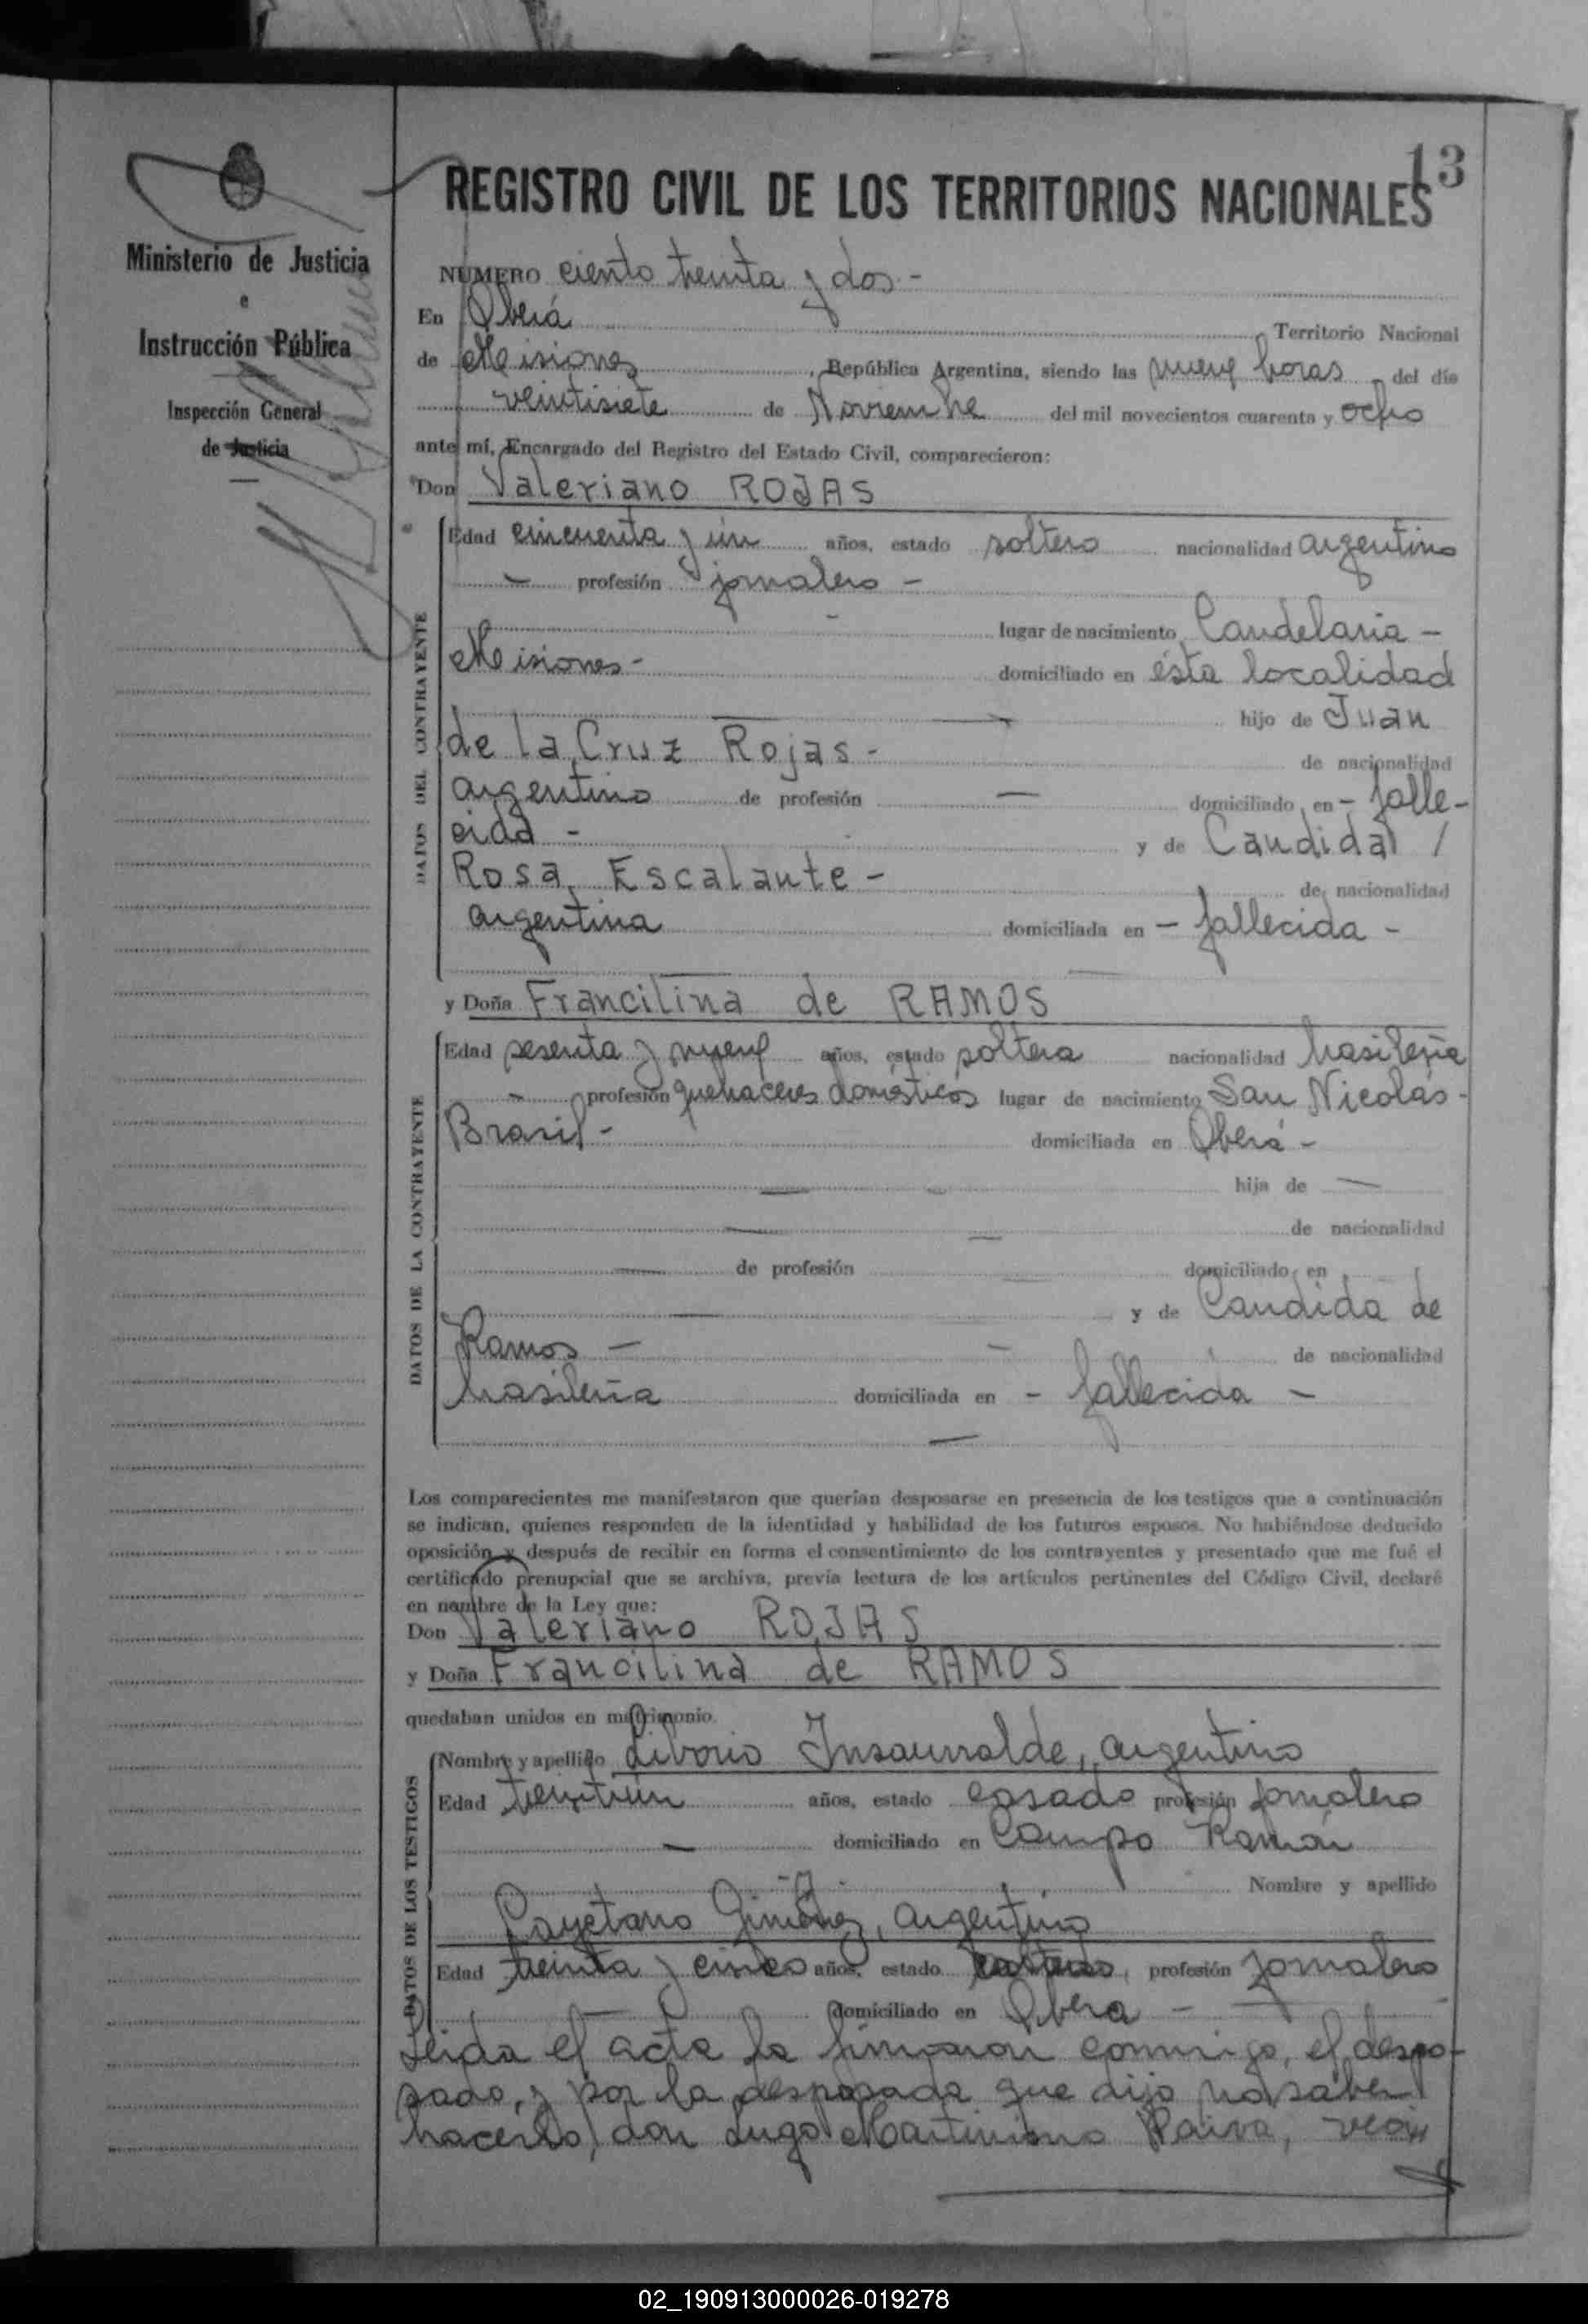 13
REGISTRO CIVIL DE LOS TERRITORIOS NACIONALES
Ministerio de Justicia
e
Instrucción Pública
Inspección General
de Justicia
NUMERO ciento treinta y dos -
En Oberá Territorio Nacional
de Misiones, República Argentina, siendo las nueve horas del día
veintisiete de Noviembre del mil novecientos cuarenta y ocho
ante mí, Encargado del Registro del Estado Civil, comparecieron:
Don Valeriano ROJAS
DATOS DEL CONTRAYENTE
Edad cincuenta y un años, estado soltero nacionalidad argentino
- profesión jornalero -
lugar de nacimiento Candelaria -
Misiones - domiciliado en ésta localidad
hijo de Juan
de la Cruz Rojas - de nacionalidad
argentino de profesión — domiciliado en - falle-
cido - y de Candida /
Rosa Escalante - de nacionalidad
argentina domiciliada en - fallecida -
y Doña Francilina de RAMOS
DATOS DE LA CONTRAYENTE
Edad sesenta y nueve años, estado soltera nacionalidad brasileña
- profesión quehaceres domésticos lugar de nacimiento San Nicolás -
Brasil - domiciliada en Oberá -
hija de —
de nacionalidad
de profesión domiciliado en
y de Candida de
Ramos — de nacionalidad
brasileña domiciliada en - fallecida -
Los comparecientes me manifestaron que querían desposarse en presencia de los testigos que a continuación
se indican, quienes responden de la identidad y habilidad de los futuros esposos. No habiéndose deducido
oposición y después de recibir en forma el consentimiento de los contrayentes y presentado que me fué el
certificado prenupcial que se archiva, previa lectura de los artículos pertinentes del Código Civil, declaré
en nombre de la Ley que:
Don Valeriano ROJAS
y Doña Francilina de RAMOS
quedaban unidos en matrimonio.
DATOS DE LOS TESTIGOS
Nombre y apellido Liborio Insaurralde, argentino
Edad treintiún años, estado casado profesión jornalero
— domiciliado en Campo Ramón
Nombre y apellido
Cayetano Giménez, argentino
Edad treinta y cinco años, estado profesión jornalero
domiciliado en Oberá -
Leida el acta la firmaron conmigo, el despo-
sado, y por la desposada que dijo no saber
hacerlo, don Lugo Martiniano Paiva, vecin
02_190913000026-019278